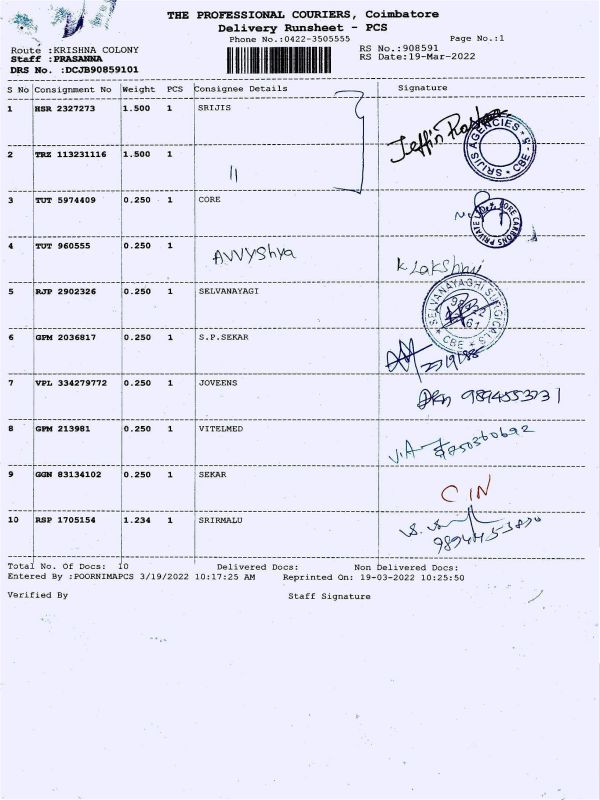 THE PROFESSIONAL COURIERS, Coimbatore
Delivery Runsheet - PCS
Phone No.:0422-3505555 Page No.:1
Route :KRISHNA COLONY RS No.:908591
Staff :PRASANNA RS Date:19-Mar-2022
DRS No. :DCJB90859101
S No Consignment No Weight PCS Consignee Details Signature
1 HSR 2327273 1.500 1 SRIJIS
Jeffin
SRIJIS AGENCIES * CBE - 5 *
2 TRZ 113231116 1.500 1 "
3 TUT 5974409 0.250 1 CORE
CORE CARBONS PRIVATE
4 TUT 960555 0.250 1 AVVYShya K Lakshmi
5 RJP 2902326 0.250 1 SELVANAYAGI
SELVANAYAGHI SURGICALS * CBE *
6 GPM 2036817 0.250 1 S.P.SEKAR
7 VPL 334279772 0.250 1 JOVEENS
8 GPM 213981 0.250 1 VITELMED
9 GGN 83134102 0.250 1 SEKAR CIN
10 RSP 1705154 1.234 1 SRIRMALU
Total No. Of Docs: 10 Delivered Docs: Non Delivered Docs:
Entered By :POORNIMAPCS 3/19/2022 10:17:25 AM Reprinted On: 19-03-2022 10:25:50
Verified By Staff Signature